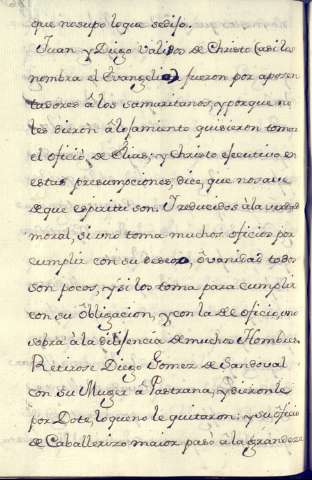 que no supo lo que se dijo.
Juan y Diego validos de Christo (asi los
nombra el Evangelio) fueron por aposen
tadores â los samaritanos, y porque no
les dieron âlojamiento quisieron tomar
el oficio, de Elias; y Christo executivo en
estas presumpciones, dice, que no save
de que espiritu son. Y reducidos â la verdad
moral, si uno toma muchos oficios por
cumplir con su deseo, ô vanidad todos
son pocos, y si los toma para cumplir
con su ôbligacion, y con la del oficio, uno
sobra â la diligencia de muchos Hombres.
Retirose Diego Gomez de Sandoval
con su Muger â Pastrana, y dieronle
por Dote, lo que no le quitaron: y su ôficio
de Caballerizo maior pasò â la grandeza